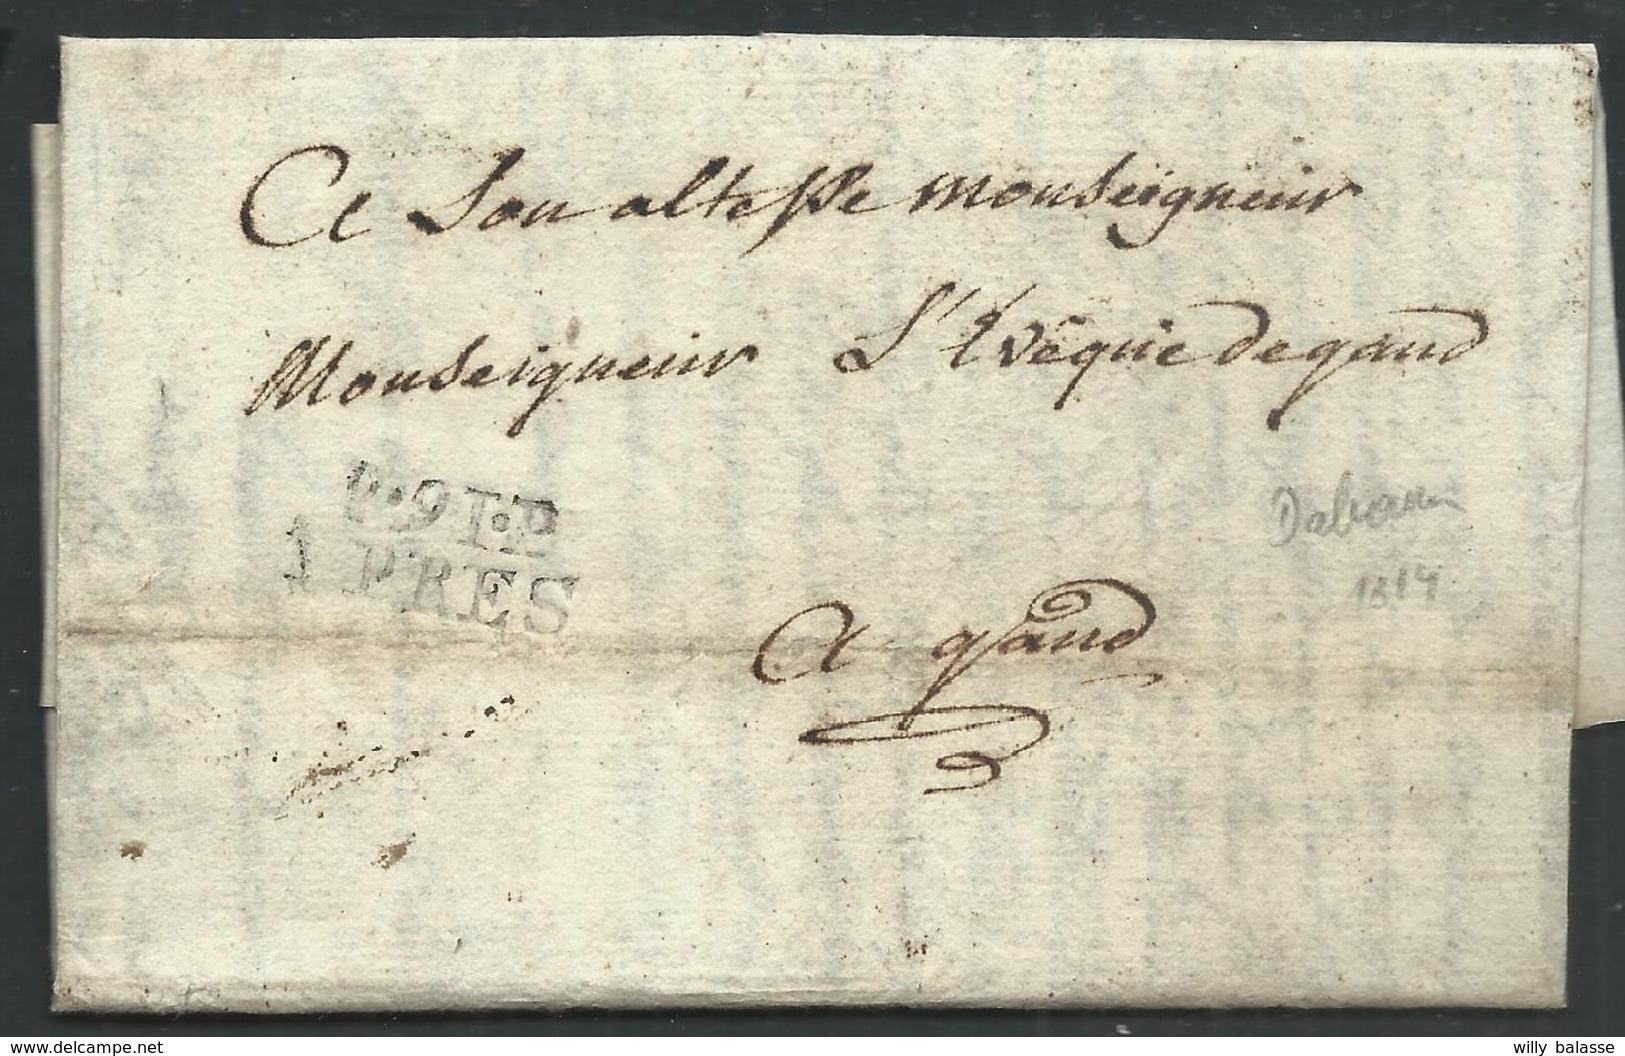 A Son altesse monseigneur
Monseigneur L'Evêque de gand
P.91.P
YPRES
A gand
1814
www.delcampe.net
willy balasse